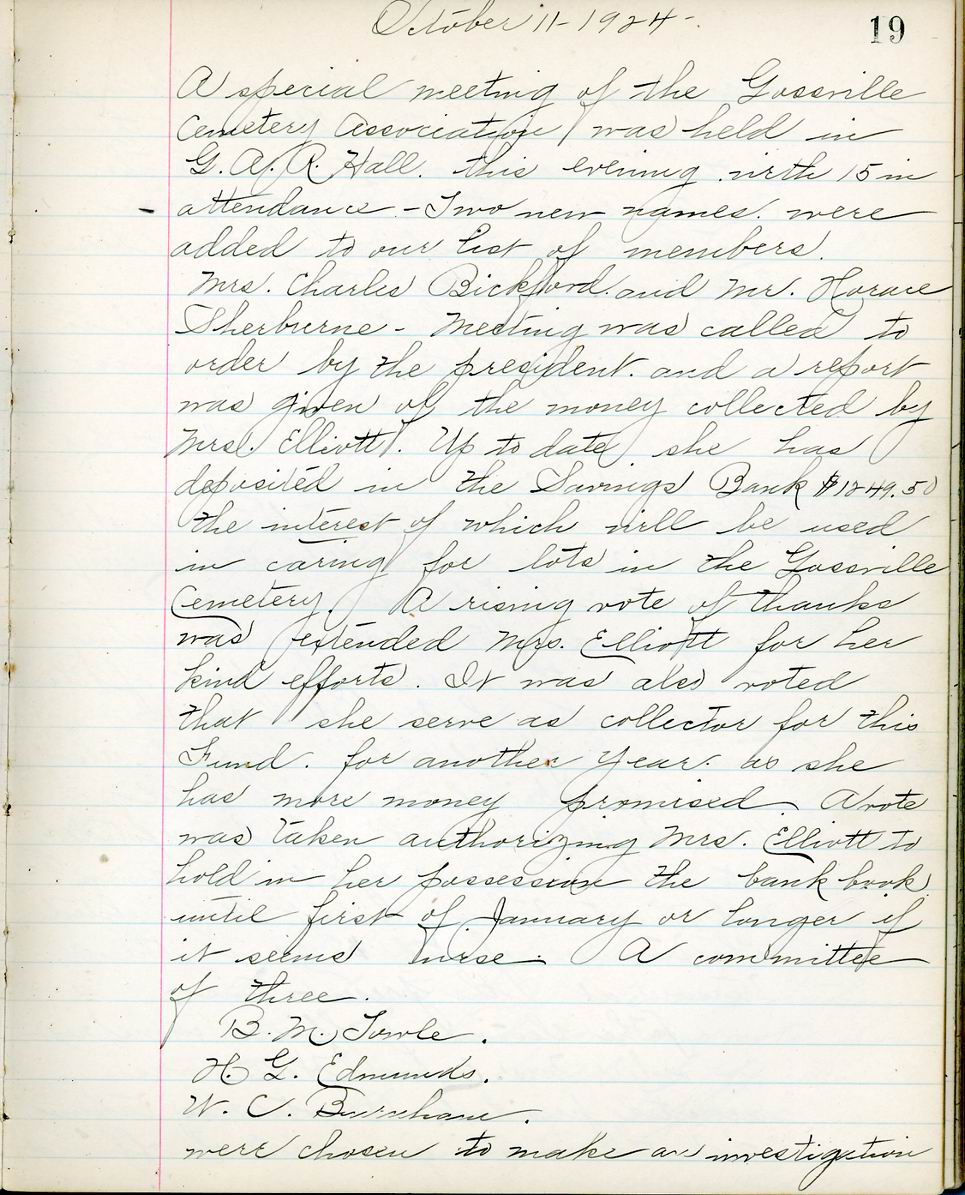 October 11 - 1924 -
19
A special meeting of the Gossville
Cemetery Association was held in
G. A. R. Hall. this evening. with 15 in
attendance - Two new names. were
added to our list of members.
Mrs. Charles Bickford. and Mr. Horace
Sherburne - Meeting was called to
order by the president. and a report
was given of the money collected by
Mrs. Elliott. Up to date she has
deposited in the Savings Bank $1249.50
the interest of which will be used
in caring for lots in the Gossville
Cemetery. A rising vote of thanks
was extended Mrs. Elliott for her
kind efforts. It was also voted
that she serve as collector for this
Fund. for another year. as she
has more money promised. A vote
was taken authorizing Mrs. Elliott to
hold in her possession the bank book
until first of January or longer if
it seems wise. A committee
of three.
B. M. Towle.
H. G. Edmunds.
W. C. Burnham.
were chosen to make an investigation